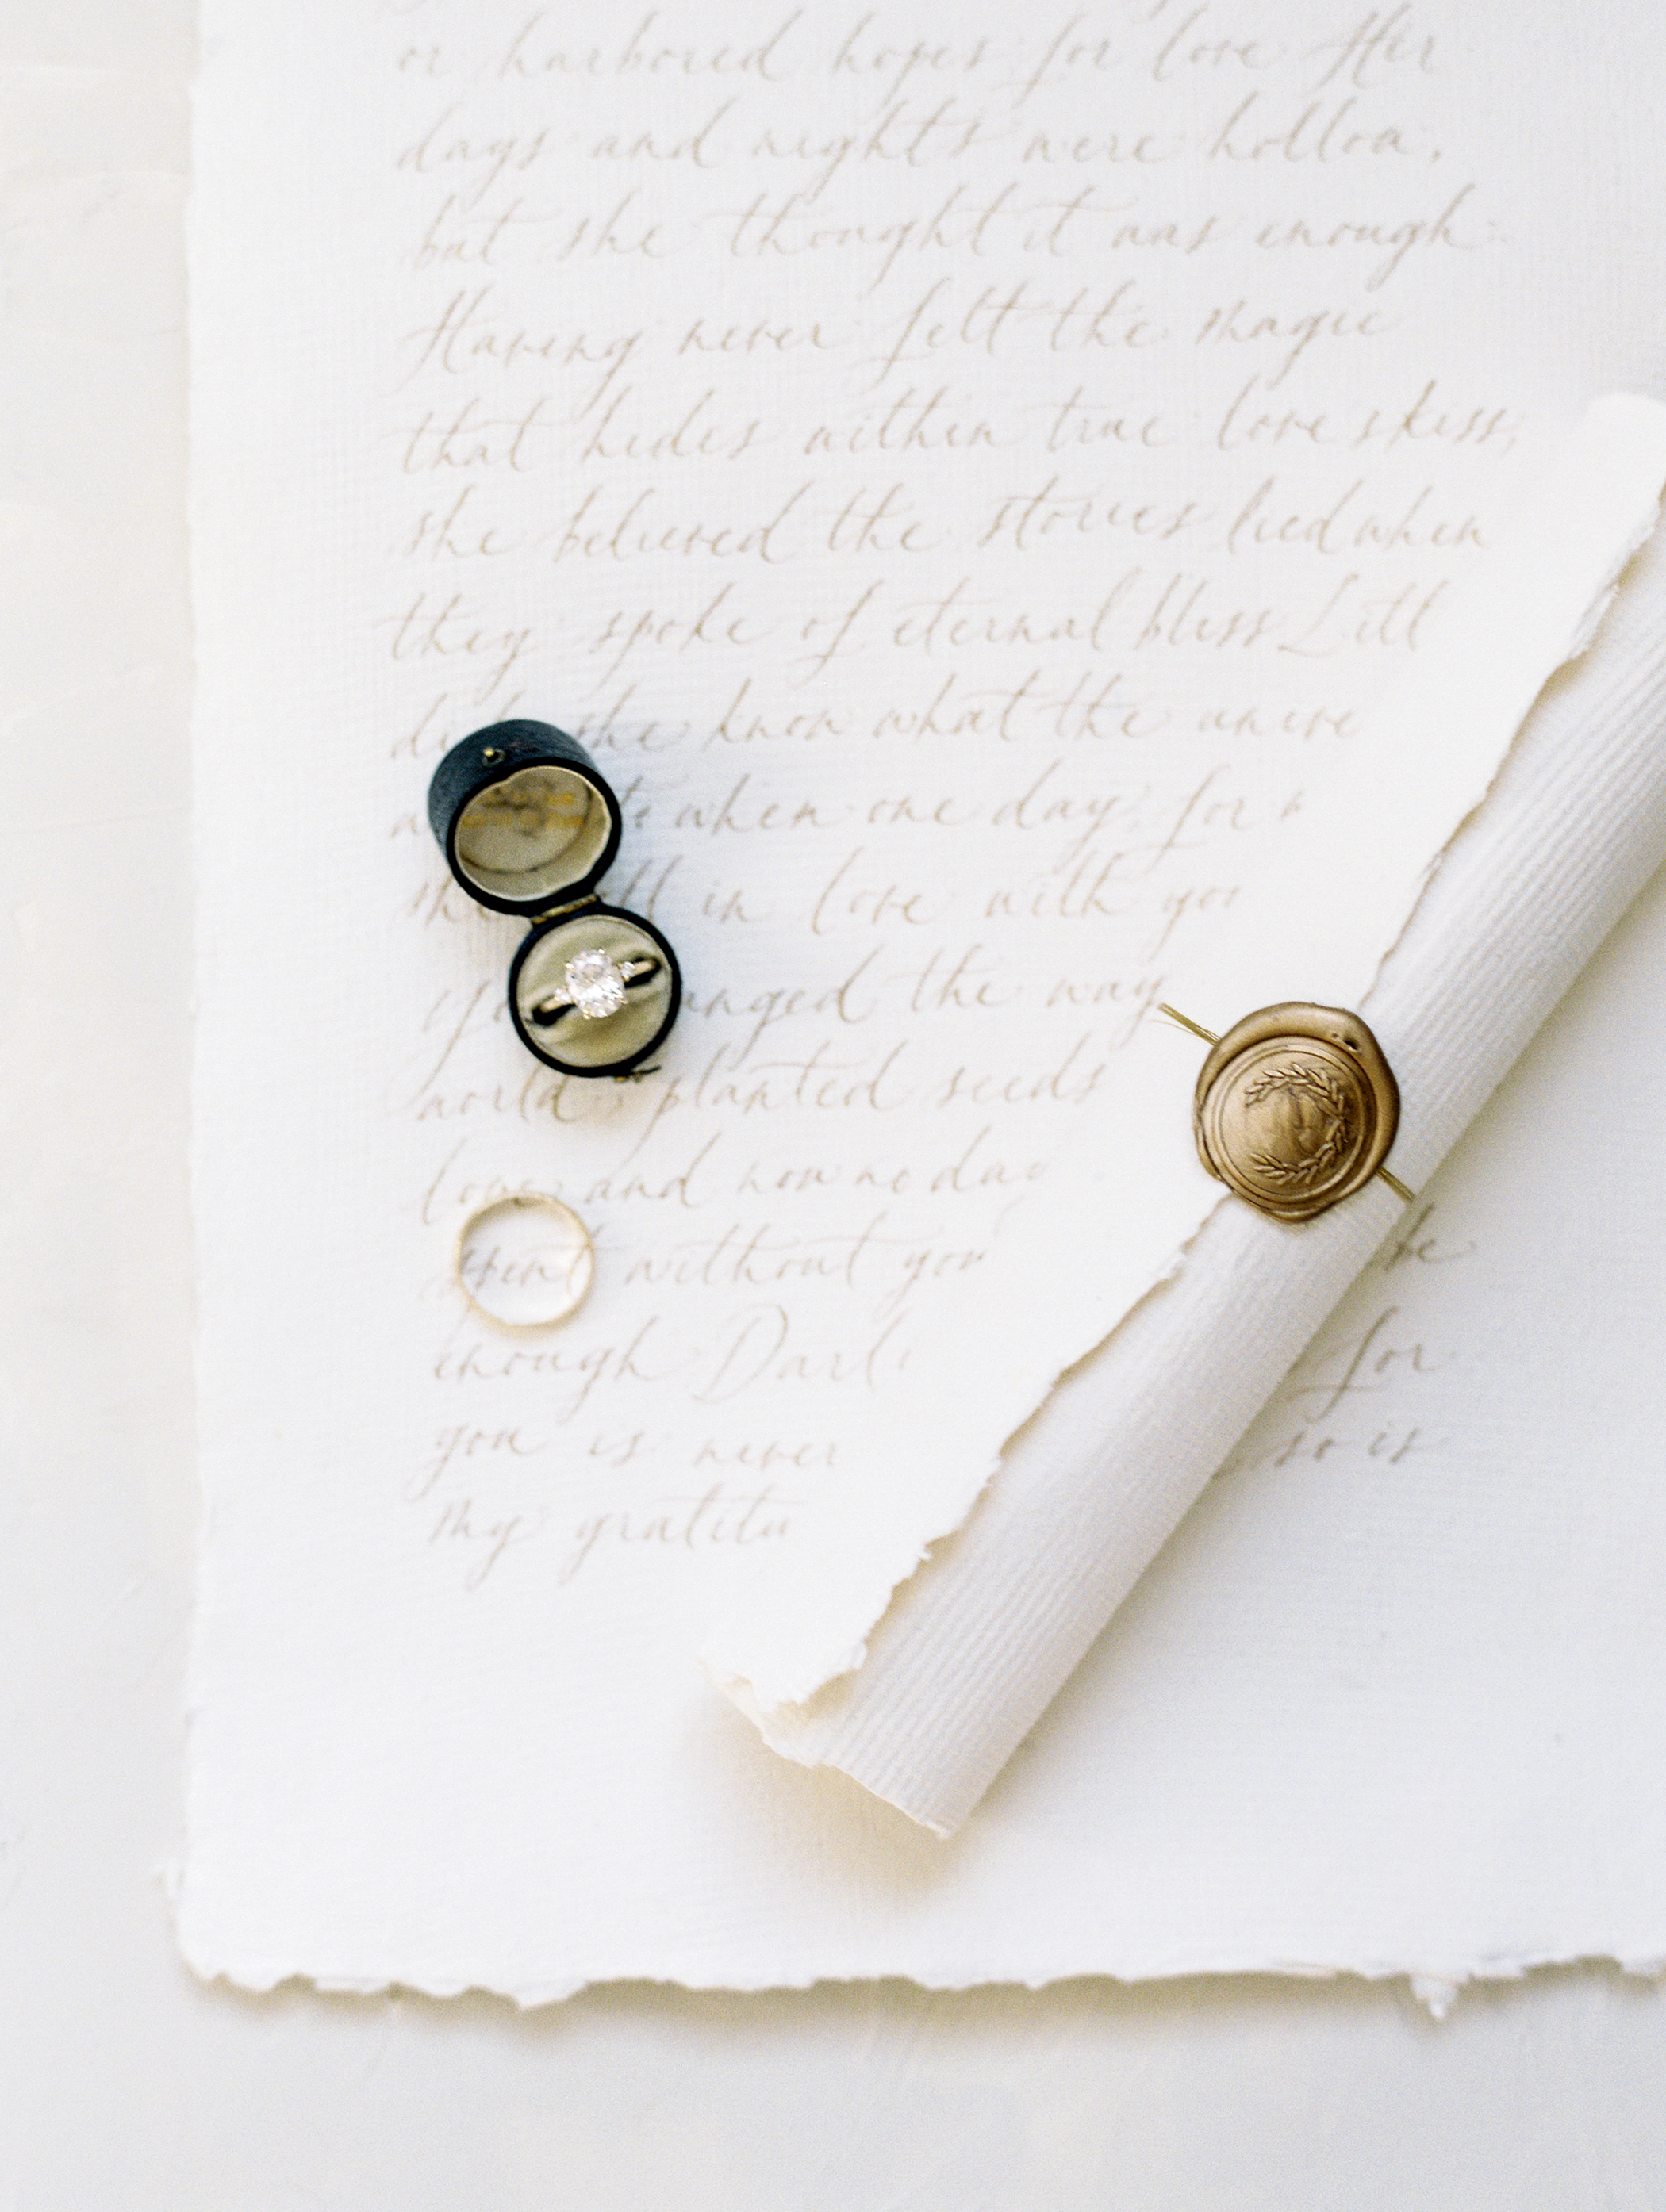 or harbored hopes for love Her
days and nights were hollow,
but she thought it was enough.
Having never felt the magic
that hides within true love's kiss,
she believed the stories lied when
they spoke of eternal bliss Littl
she know what the
when one day, for
in love with you
the way
world, planted seeds
love and now no day
spent without you be
enough Darli for
you is never so is
my gratitu